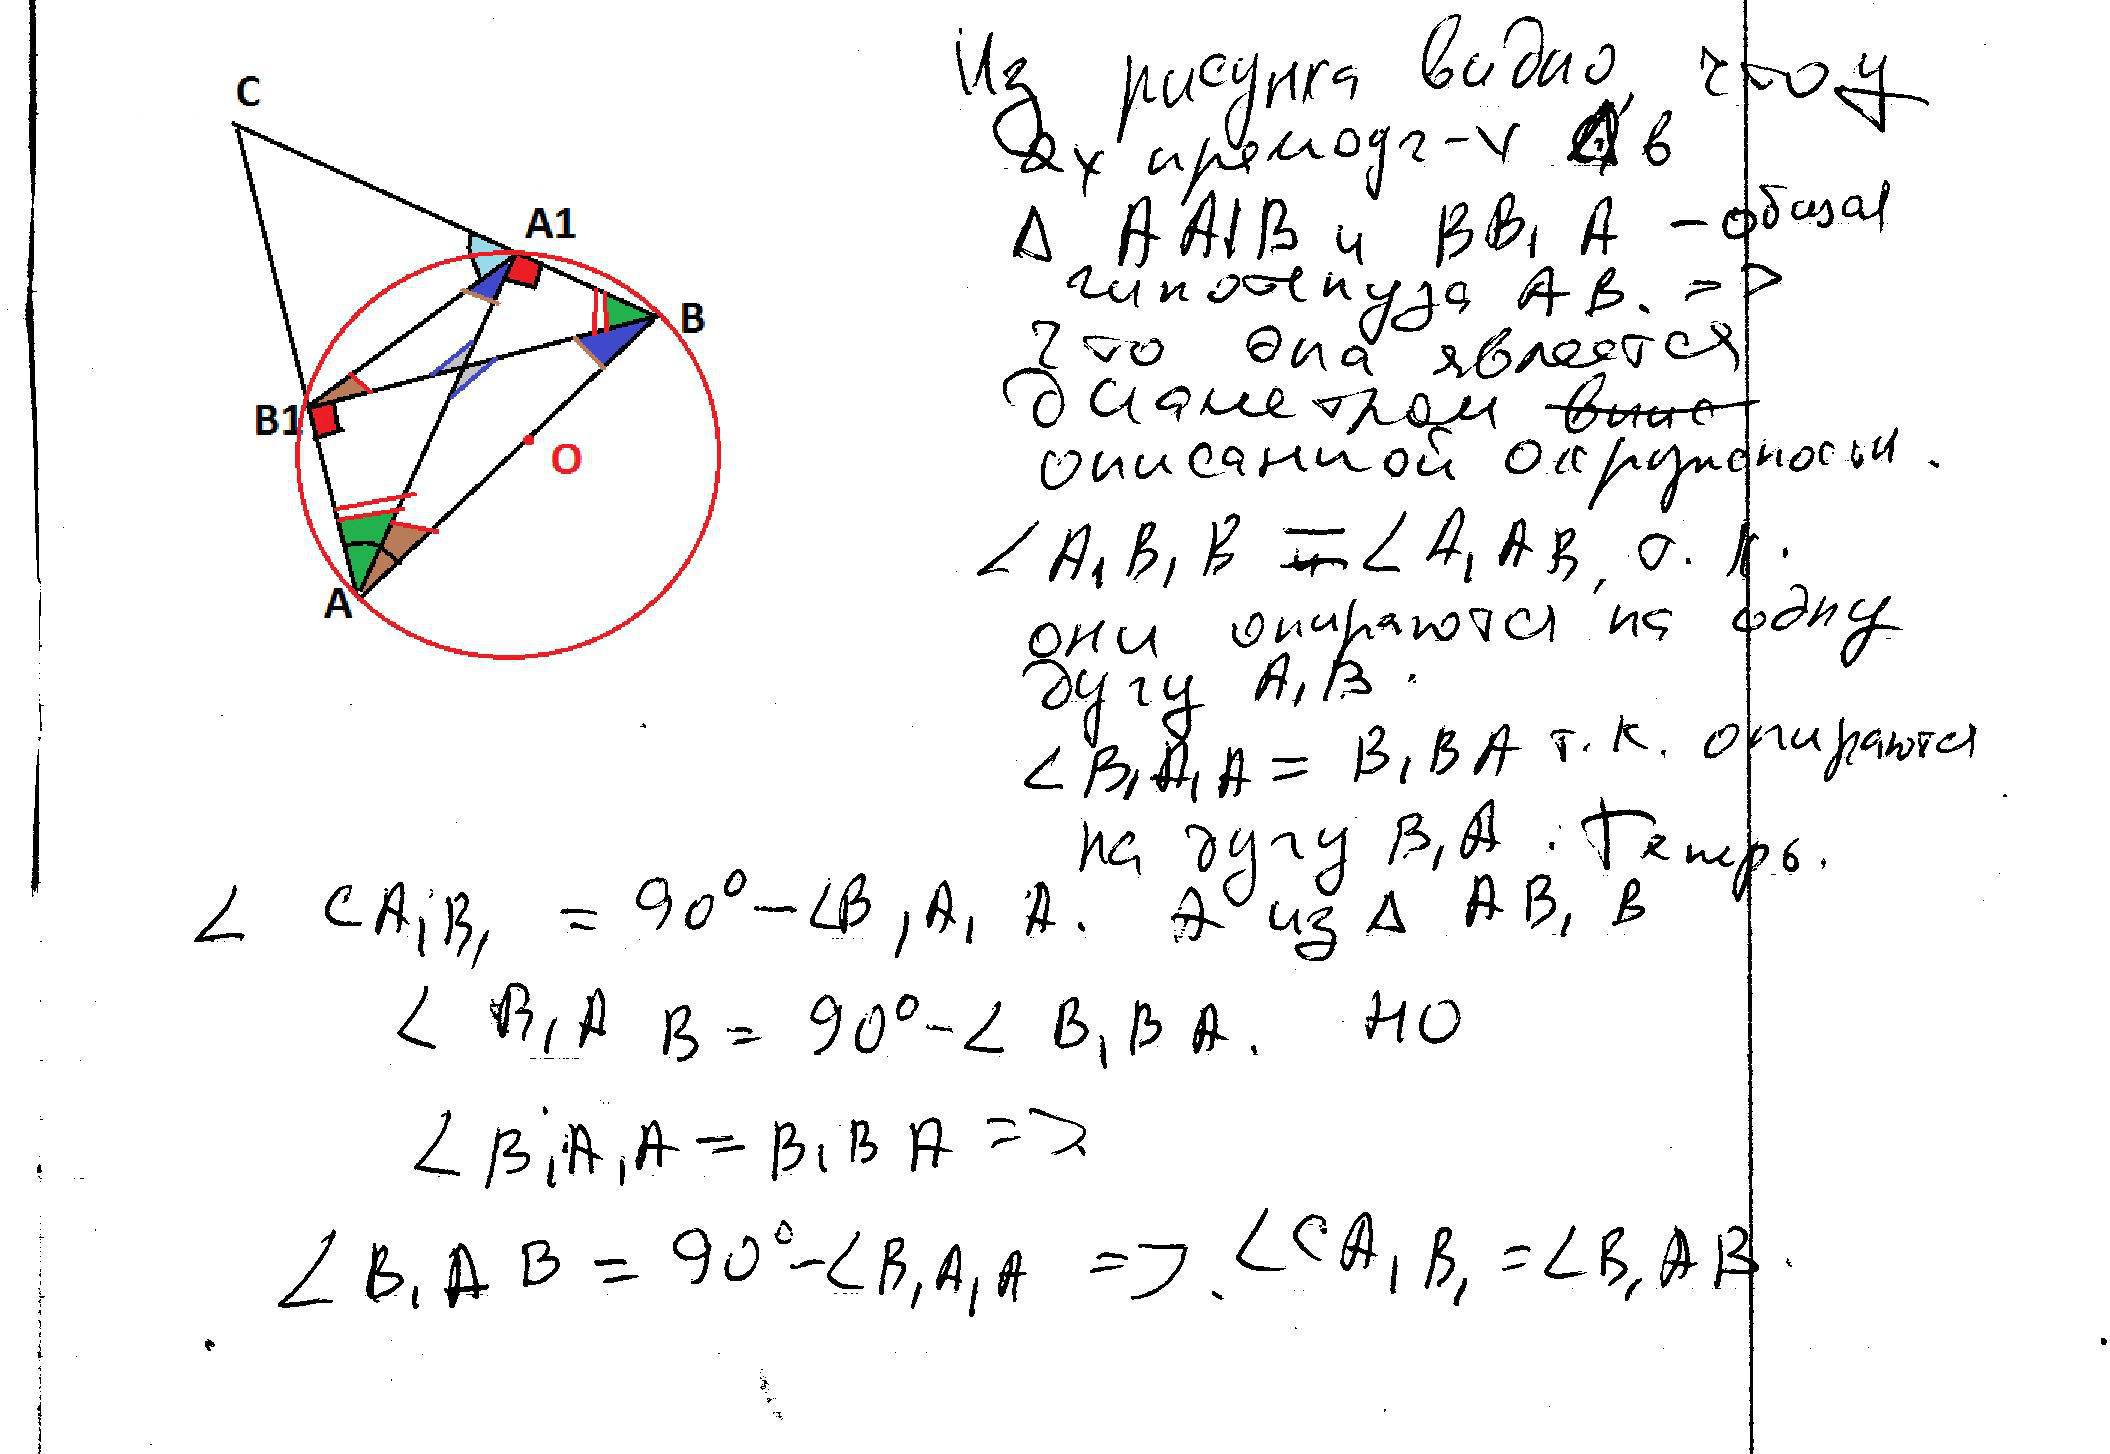 C
A1
B
B1
O
A
Из рисунка видно, что у
2х прямоуг-х в
Δ AA1B и BB1A - общая
гипотенуза AB. =>
что она является
диаметром
описанной окружности.
∠A1B1B = ∠A1AB, т.к.
они опираются на одну
дугу A1B.
∠B1A1A = B1BA т.к. опираются
на дугу B1A. Теперь.
∠ CA1B1 = 90° - ∠B1A1A. А из Δ AB1B
∠ B1AB = 90° - ∠ B1BA. НО
∠B1A1A = B1BA =>
∠B1AB = 90° - ∠B1A1A => ∠CA1B1 = ∠B1AB.